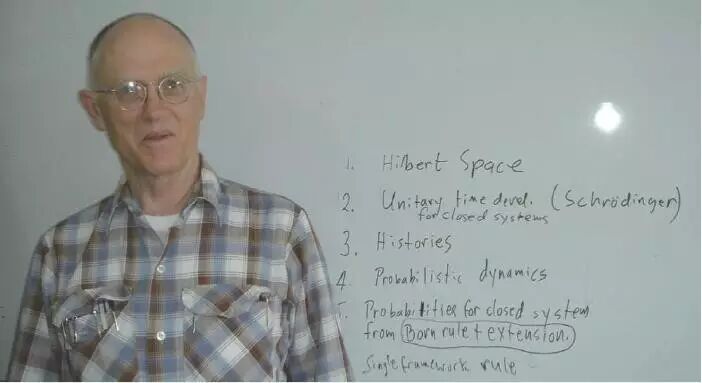 1. Hilbert Space
2. Unitary time devel. (Schrödinger)
for closed systems
3. Histories
4 Probabilistic dynamics
5. Probabilities for closed system
from Born rule + extension.
Single framework rule